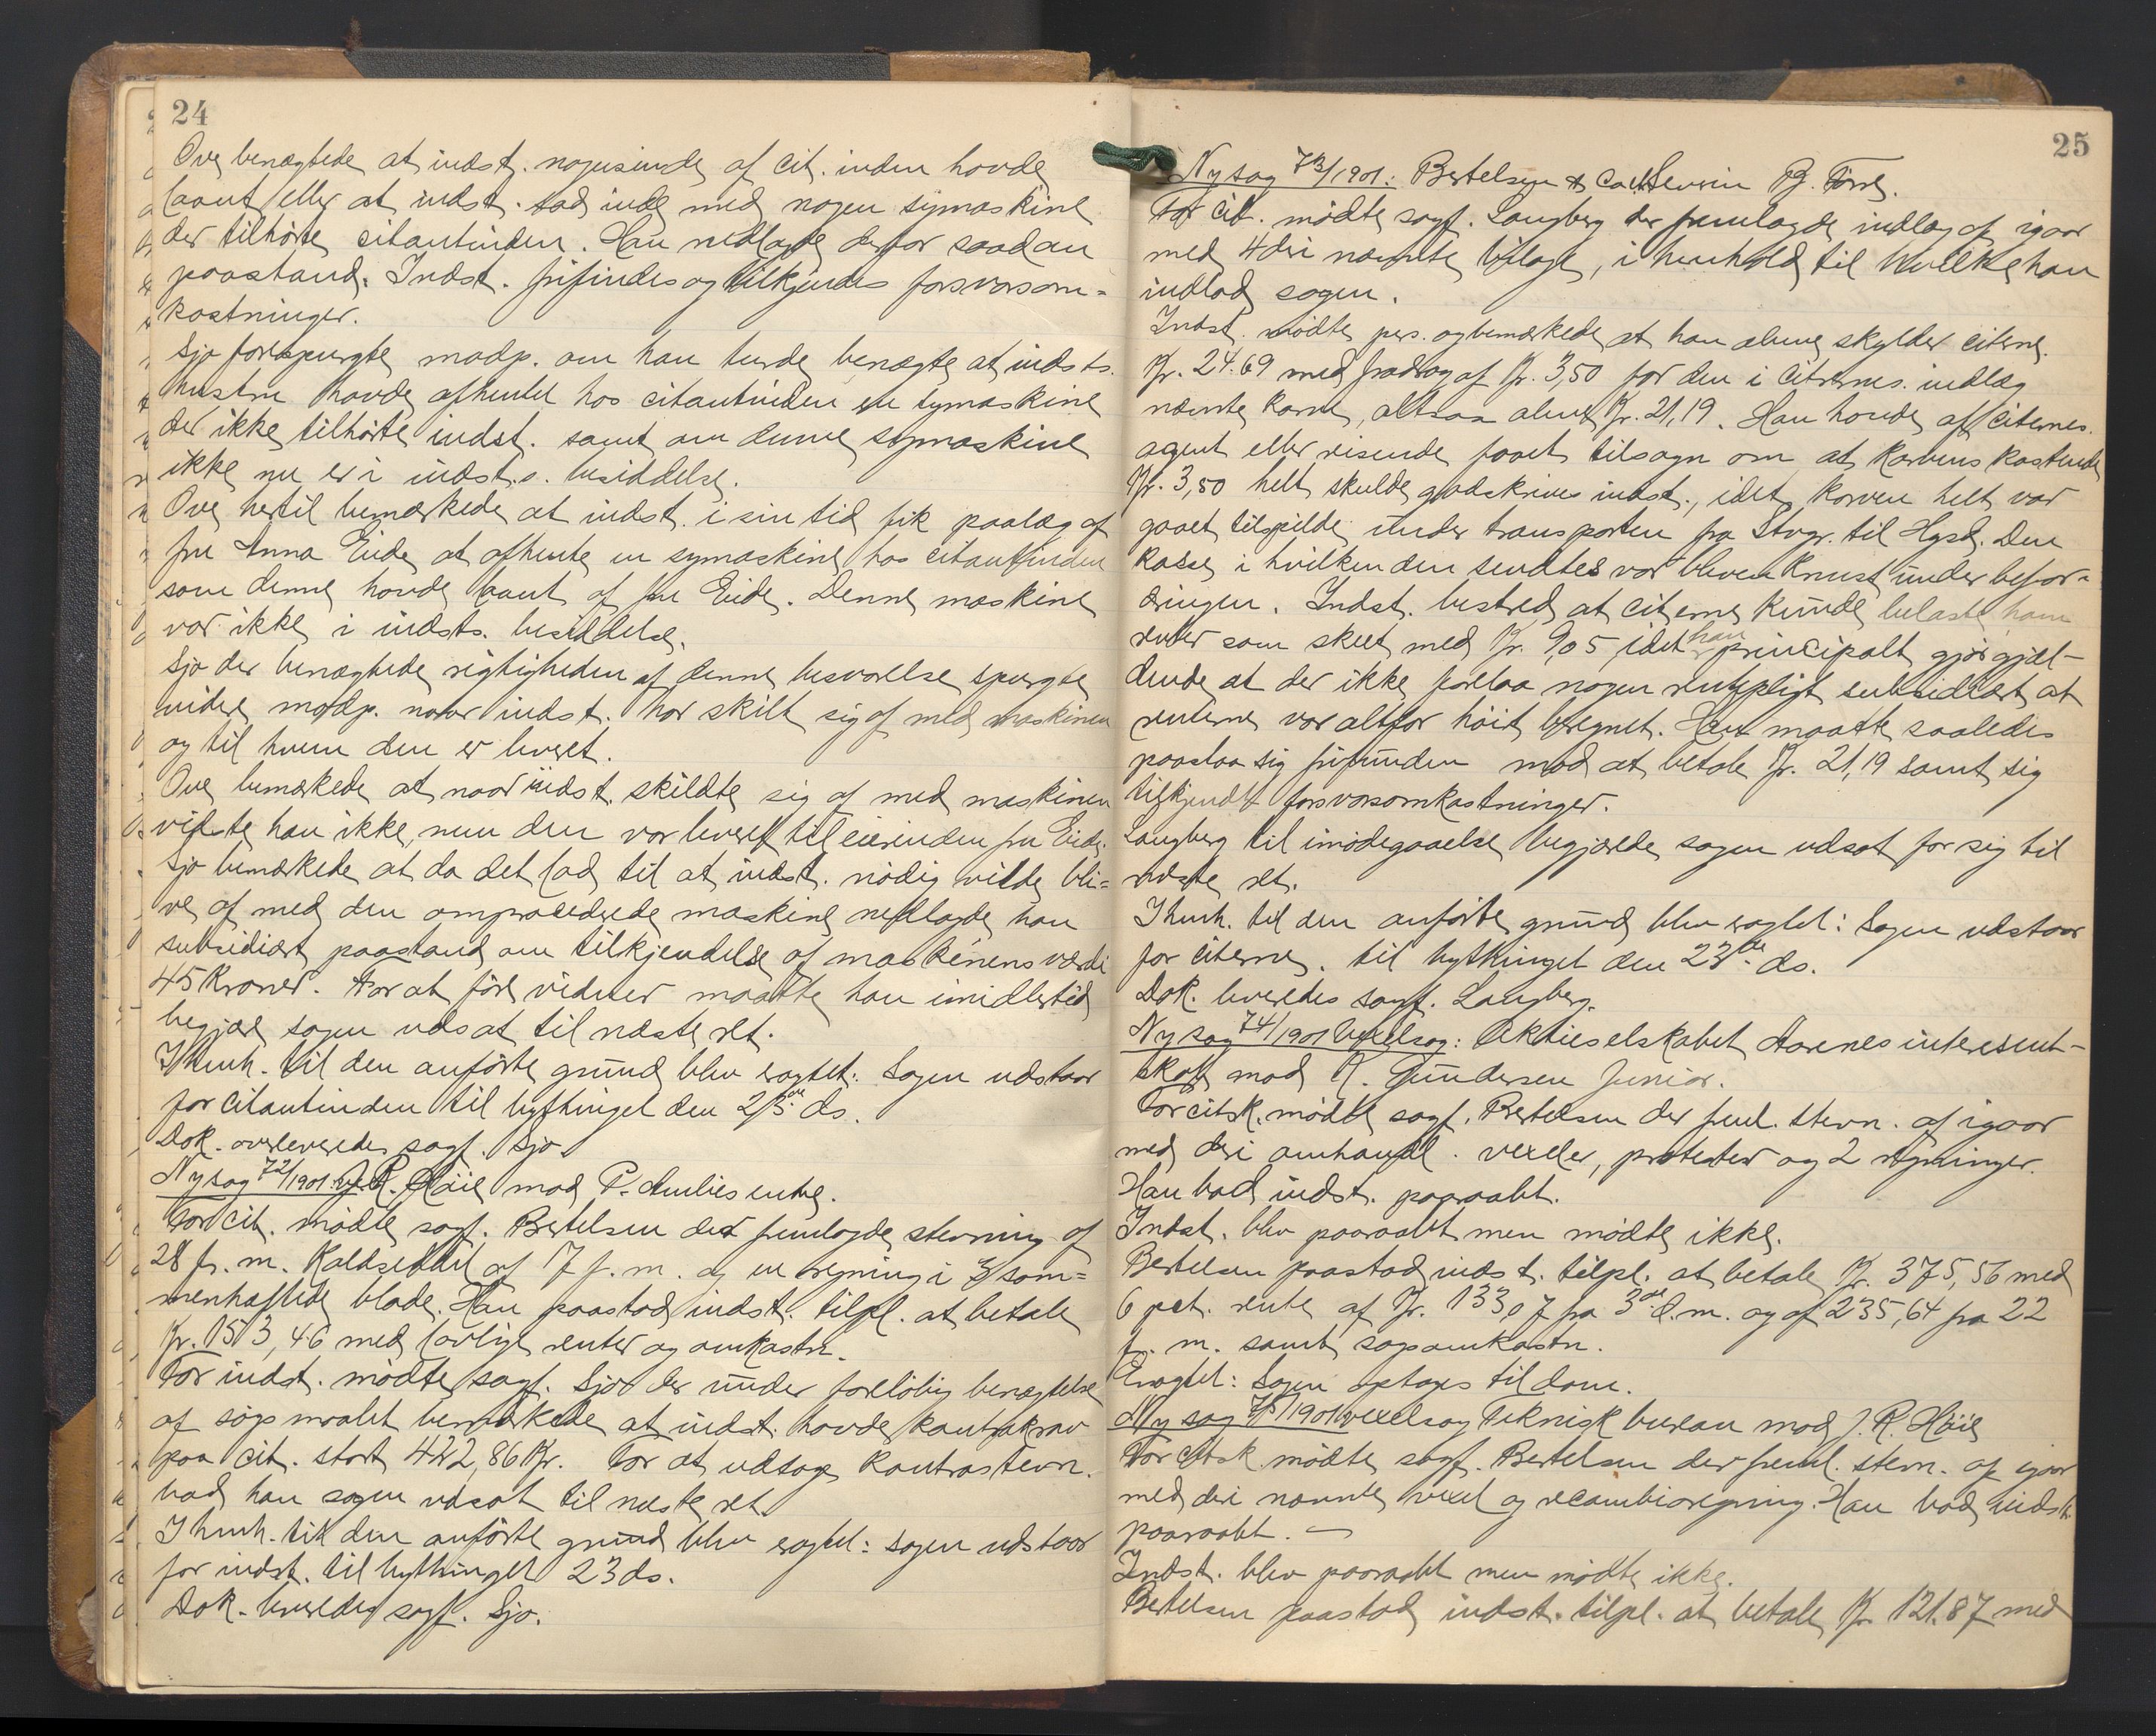 24
Ove benægtede at indst. nogensinde af cit. inden havde
laant eller at indst. sad inde med nogen symaskine
der tilhörte citantinden. Han nedlagde derfor saadan
paastand: Indst. frifindes og tilkjendes forsvarsom-
kostninger.
Sjo forespurgte modp. om han turde benægte at indsts.
hustru havde afhentet hos citantinden en symaskine
der ikke tilhörte indst. samt om denne symaskine
ikke nu er i indst.s. besiddelse.
Ove hertil bemærkede at indst. i sin tid fik paalæg af
fru Anna Eide at afhente en symaskine hos citantinden
som denne havde laant af fru Eide. Denne maskine
var ikke i indsts. besiddelse.
Sjo der benægtede rigtigheden af denne besvarelse spurgte
videre modp. naar indst. har skilt sig af med maskinen
og til hvem den er leveret.
Ove bemærkede at naar indst. skildte sig af med maskinen
vidste han ikke, men den var leveret til eierinden fru Eide.
Sjo bemærkede at da det lod til at indst. nödig vilde bli-
ve af med den omprocederede maskine nedlagde han
subsidiært paastand om tilkjendelse af maskinens værdi
45 kroner. For at före vidner maatte han imidlertid
begjære sagen udsat til næste ret.
I henh. til den anförte grund blev eragtet: Sagen udstaar
for citantinden til bythinget den 23de ds.
Dok. overleveredes sagf. Sjo
Ny sag 72/1901: J. R. Höie mod P. Amlies enke.
For cit. mödte sagf. Bertelsen der fremlagde stevning af
28 f. m. Kaldseddel af 17 f. m. og en regning i 3 sam-
menhæftede blade. Han paastod indst. tilpl. at betale
Kr. 153,46 med lovlige renter og omkostn.
For indst. mödte sagf. Sjo der under forelöbig benægtelse
af sögsmaalet bemærkede at indst. havde kontrakrav
paa cit. stort 442,86 Kr. For at udtage kontrastevn.
bad han sagen udsat til næste ret.
I henh. til den anförte grund blev eragtet: Sagen udstaar
for indst. til bythinget 23 ds.
Dok. leveredes sagf. Sjo.
25
Ny sag 73/1901: Bertelsen & Co. Severin B. Törre.
For cit. mödte sagf. Langberg der fremlagde indlæg af igaar
med 4 deri nævnte bilage, i henhold til hvilke han
indlod sagen.
Indst. mödte pers. og bemærkede at han alene skylder citerne.
Kr. 24.69 med fradrag af Kr. 3,50 for den i citernes. indlæg
nævnte karve, altsaa alene Kr. 21,19. Han havde af citernes.
agent eller reisende faaet tilsagn om at karvens kostende
Kr. 3,50 helt skulde godskrives indst., idet karven helt var
gaaet tilspilde under transporten fra Stvgr. til Hgsd. Den
kasse i hvilken den sendtes var bleven knust under befor-
dringen. Indst. bestred at citerne kunde belaste ham
renter som skeet med Kr. 9,05, idet han principalt gjör gjæl-
dende at der ikke forelaa nogen rentepligt subsidiært at
renterne var altfor höit beregnet. Han maatte saaledes
paastaa sig frifunden mod at betale Kr. 21,19 samt sig
tilkjendt forsvarsomkostninger.
Langberg til imödegaaelse begjærede sagen udsat for sig til
næste ret.
I henh. til den anförte grund blev eragtet: Sagen udstaar
for citerne. til bythinget den 23de ds.
Dok. leveredes sagf. Langberg.
Ny sag 74/1901 vexelsag: Aktieselskabet Aarenes interesent-
skab mod N. Gundersen Junior.
For citsk. mödte sagf. Bertelsen der freml. stevn. af igaar
med deri omhandl. vexler, protester og 2 regninger.
Han bad indst. paaraabt.
Indst. blev paaraabt men mödte ikke.
Bertelsen paastod indst. tilpl. at betale Kr. 375,56 med
6 pct. rente af Kr. 133,07 fra 3de d. m. og af 235,64 fra 22
f. m. samt sagsomkostn.
Eragtet: Sagen optages til dom.
Ny sag 75/1901 vexelsag Teknisk bureau mod J. R. Höie
For citsk. mödte sagf. Bertelsen der freml. stevn. af igaar
med deri nævnte vexel og recambioregning. Han bad indst.
paaraabt. —
Indst. blev paaraabt men mödte ikke.
Bertelsen paastod indst. tilpl. at betale Kr. 121.87 med